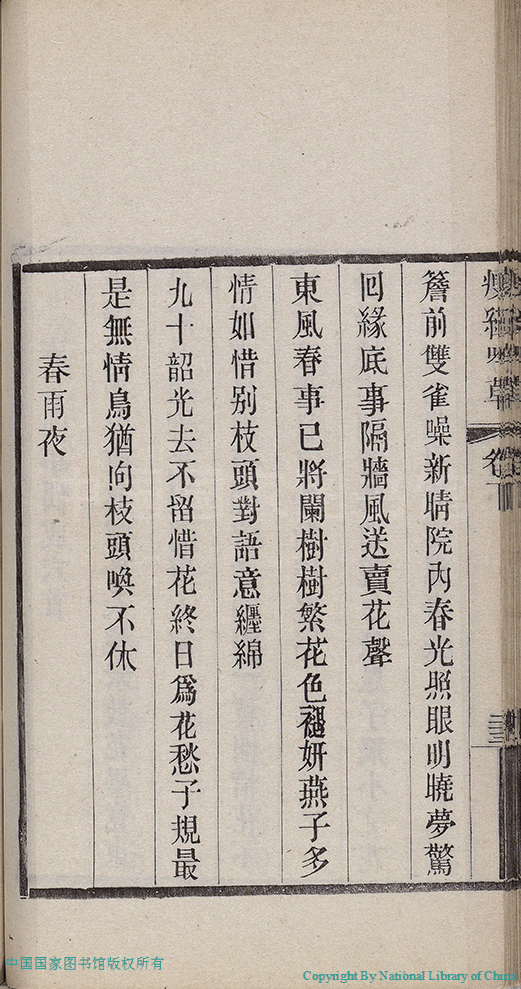 簷前雙雀噪新晴院內春光照眼明曉夢驚
回緣底事隔牆風送賣花聲
東風春事已將闌樹樹繁花色褪妍燕子多
情如惜别枝頭對語意纏綿
九十韶光去不留惜花終日爲花愁子規最
是無情鳥猶向枝頭喚不休
春雨夜
中国国家图书馆版权所有
Copyright By National Library of China